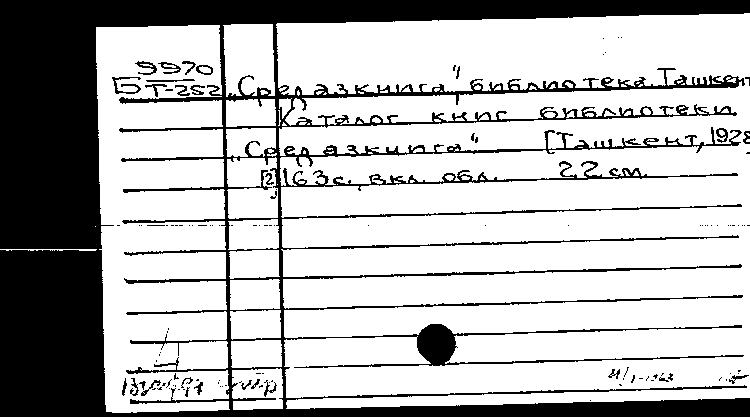 9970
Б Т-252 „Средазкнига", библиотека. Ташкент
Каталог книг библиотеки
„Средазкнига" [Ташкент, 1928
[2] 163 с., вкл. обл. 22 см.